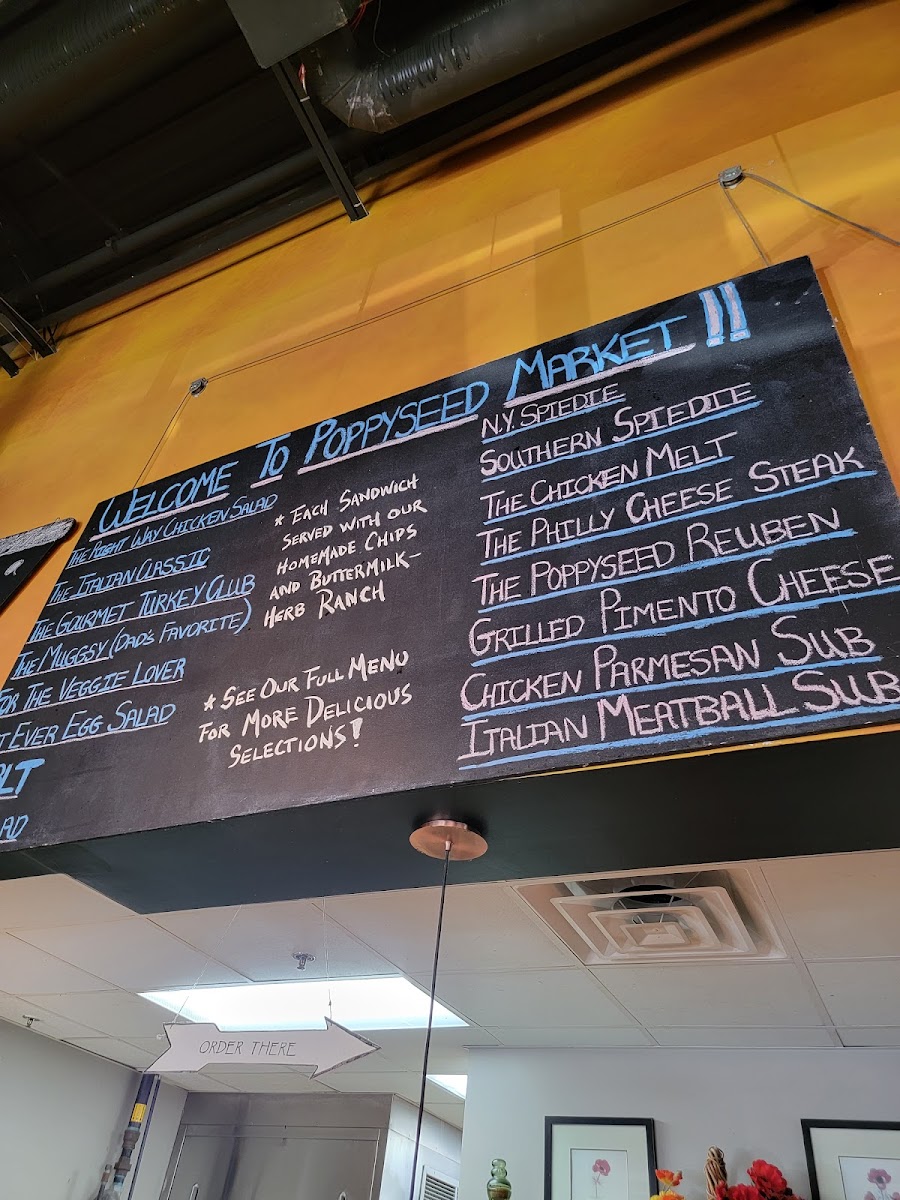 WELCOME TO POPPYSEED MARKET !!
THE RIGHT WAY CHICKEN SALAD
THE ITALIAN CLASSIC
THE GOURMET TURKEY CLUB
THE MUGGSY (DAD'S FAVORITE)
FOR THE VEGGIE LOVER
EVER EGG SALAD
BLT
* EACH SANDWICH
SERVED WITH OUR
HOMEMADE CHIPS
AND BUTTERMILK-
HERB RANCH
* SEE OUR FULL MENU
FOR MORE DELICIOUS
SELECTIONS!
N.Y. SPIEDIE
SOUTHERN SPIEDIE
THE CHICKEN MELT
THE PHILLY CHEESE STEAK
THE POPPYSEED REUBEN
GRILLED PIMENTO CHEESE
CHICKEN PARMESAN SUB
ITALIAN MEATBALL SUB
ORDER THERE